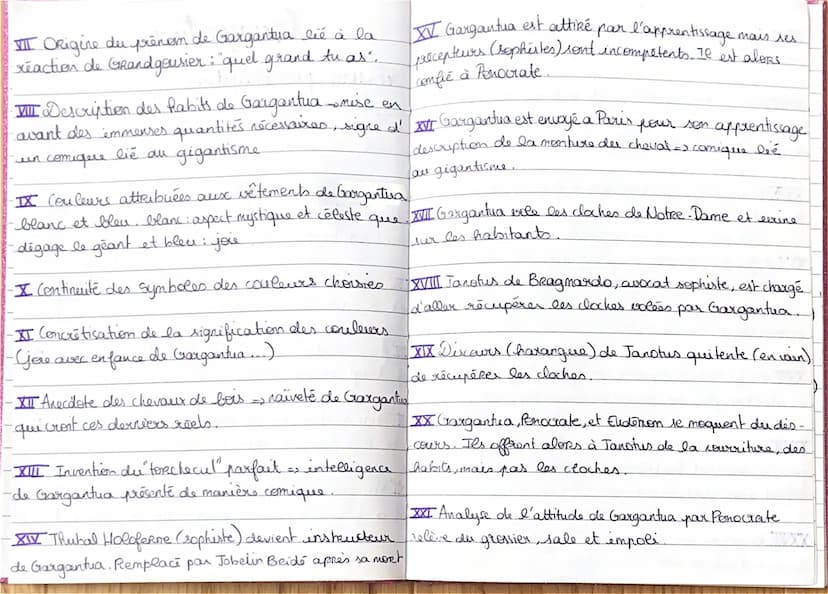 VII Origine du prénom de Gargantua lié à la
réaction de Grandgousier : "quel grand tu as".
VIII Description des habits de Gargantua → mise en
avant des immenses quantités nécessaires, signe d'
un comique lié au gigantisme
IX Couleurs attribuées aux vêtements de Gargantua
blanc et bleu. blanc : aspect mystique et céleste que
dégage le géant et bleu : joie
X Continuité des symboles des couleurs choisies
XI Concrétisation de la signification des couleurs
(joie avec enfance de Gargantua ...)
XII Anecdote des chevaux de bois => naïveté de Gargantua
qui cront ces derniers réels.
XIII Invention du "torchecul" parfait => intelligence
de Gargantua présenté de manière comique.
XIV Thubal Holoferne (sophiste) devient instructeur
de Gargantua. Remplacé par Jobelin Beidé après sa mort
XV Gargantua est attiré par l'apprentissage mais ses
précepteurs (sophistes) sont incompétents. Il est alors
confié à Ponocrate.
XVI Gargantua est envoyé a Paris pour son apprentissage
description de la monture des cheval => comique lié
au gigantisme.
XVII Gargantua vole les cloches de Notre-Dame et urine
sur les habitants.
XVIII Janotus de Bragmardo, avocat sophiste, est chargé
d'aller récupérer les cloches volées par Gargantua.
XIX Discours (harangue) de Janotus qui tente (en vain)
de récupérer les cloches.
XX Gargantua, Ponocrate, et Eudónom se moquent du dis-
cours. Ils offrent alors à Janotus de la nourriture, des
habits, mais pas les cloches.
XXI Analyse de l'attitude de Gargantua par Ponocrate
relève du grossier, sale et impoli.